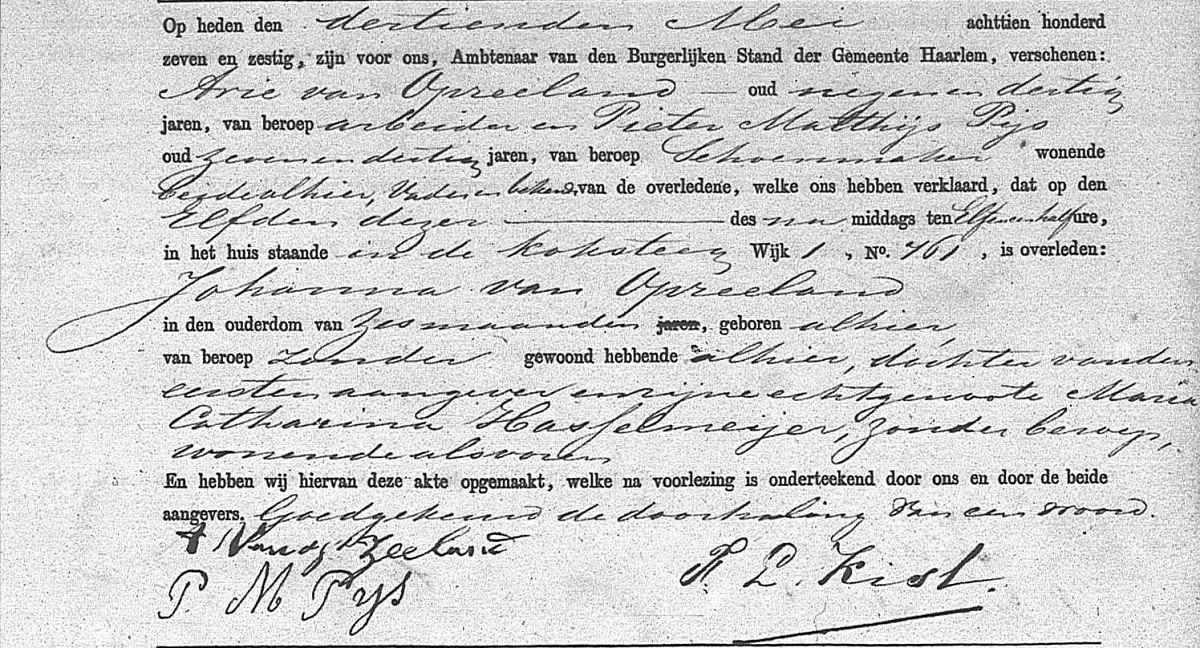 Op heden den dertienden Mei achttien honderd
zeven en zestig, zijn voor ons, Ambtenaar van den Burgerlijken Stand der Gemeente Haarlem, verschenen:
Arie van Opzeeland — oud negen en dertig
jaren, van beroep arbeider en Pieter Matthijs Pijs
oud zeven en dertig jaren, van beroep Schoenmaker wonende
beide alhier, Vader en bekende, van de overledene, welke ons hebben verklaard, dat op den
Elfden dezer — des na middags ten Elf en een half ure,
in het huis staande in de Koksteeg Wijk 1, No. 761, is overleden:
Johanna van Opzeeland
in den ouderdom van Zes maanden jaren, geboren alhier,
van beroep zonder gewoond hebbende alhier, dochter van den
eersten aangever en zijne echtgenoote Maria
Catharina Hasselmeijer, zonder beroep,
wonende als voren
En hebben wij hiervan deze akte opgemaakt, welke na voorlezing is onderteekend door ons en door de beide
aangevers. Goedgekeurd de doorhaling van een woord.
P. M Pijs
P. L. Kist.